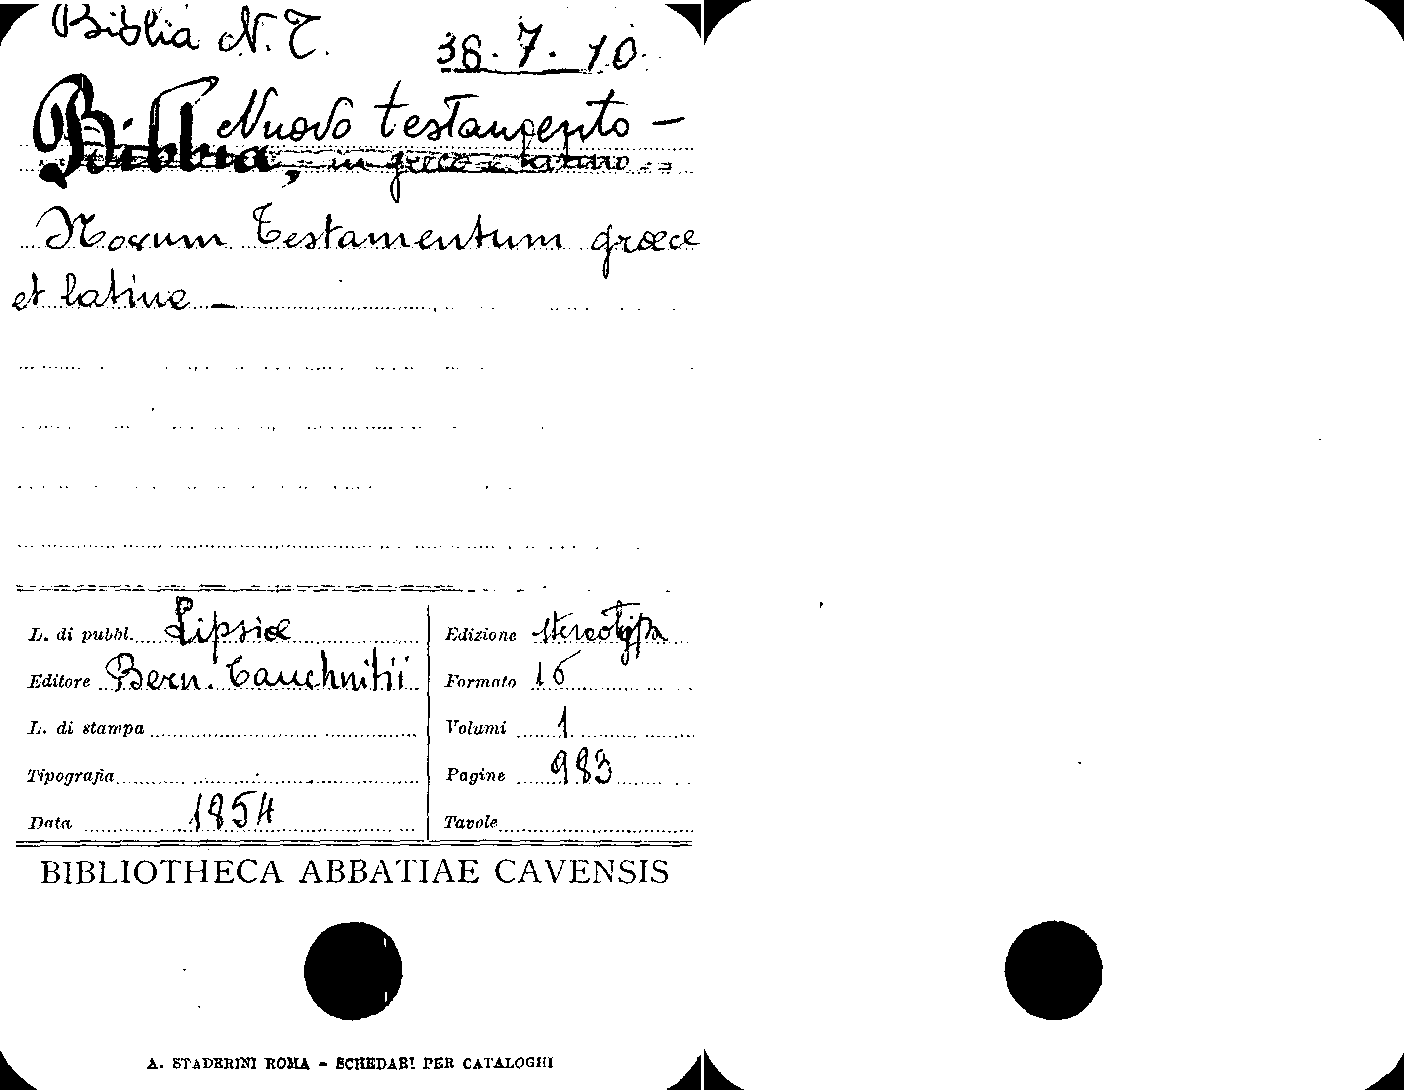 Biblia N.T.
38.7.10
Nuovo testamento -
Bibbia, - in greco e latino - =
Novum Testamentum græce
et latine -
L. di pubbl. Lipsiæ
Edizione stereotypa
Editore Bern. Tauchnitii
Formato 16
L. di stampa
Volumi 1
Tipografia
Pagine 983
Data 1854
Tavole
BIBLIOTHECA ABBATIAE CAVENSIS
A. STADERINI ROMA - SCHEDARI PER CATALOGHI